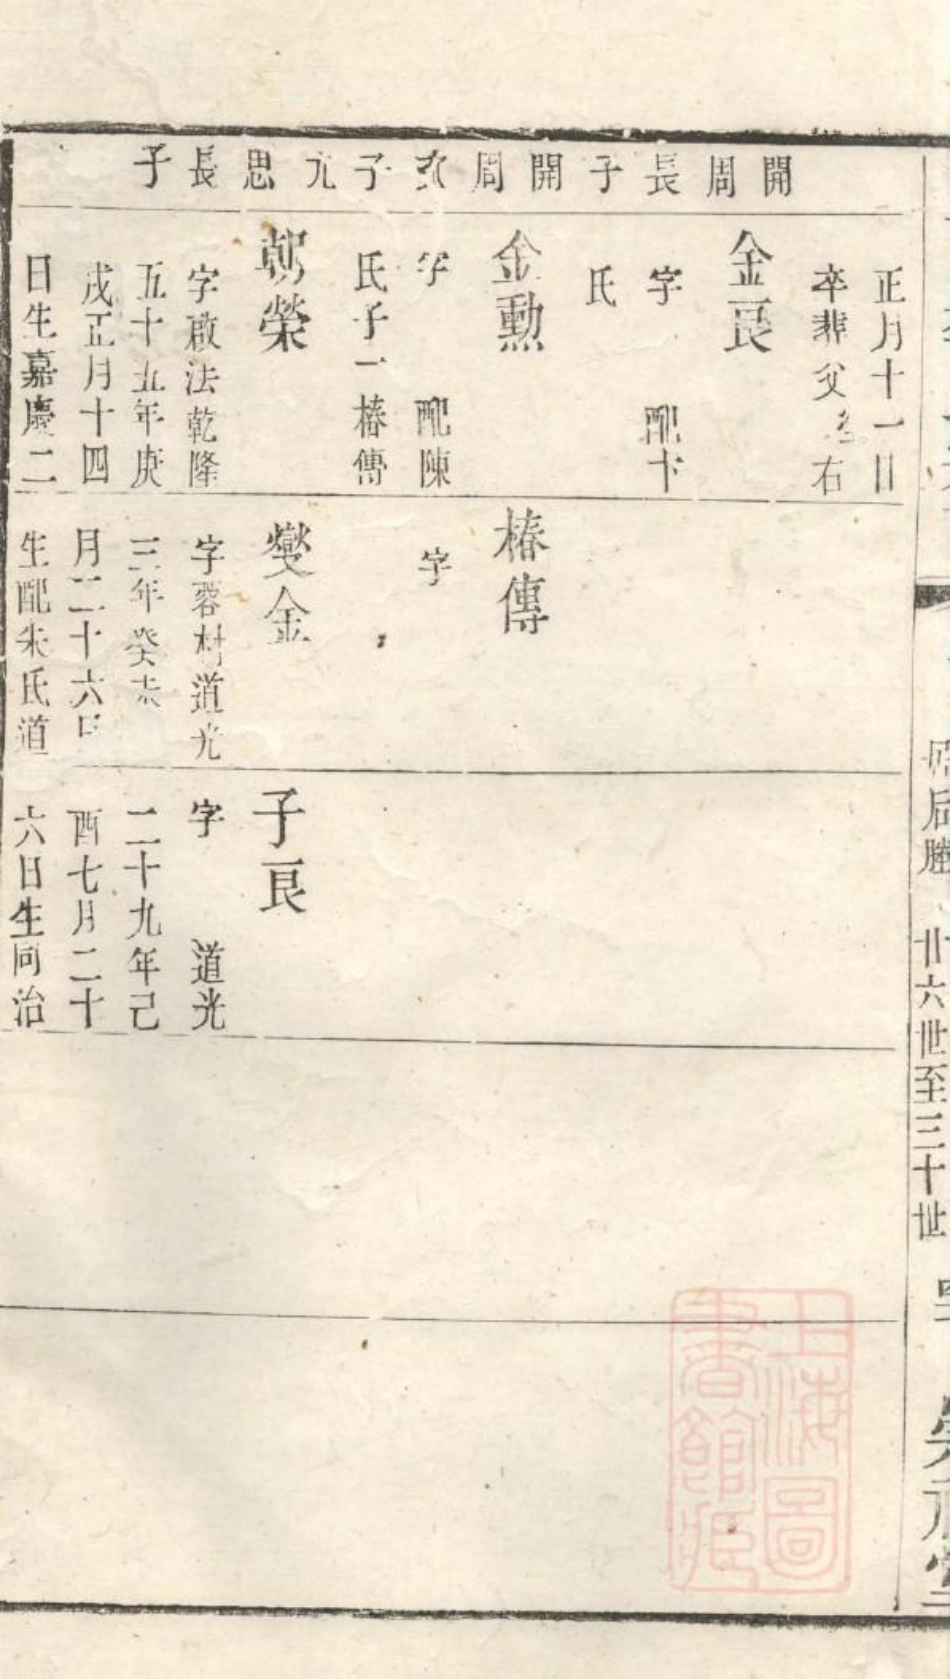 開
周
長
子
開
周
次
子
九
思
長
子
正月十一日
卒葬父右
金良
字 配卞
氏
金勳
字 配陳
氏子一椿傳
朝榮
字啟法乾隆
五十五年庚
戌正月十四
日生嘉慶二
椿傳
字
燮金
字蓉村道光
三年癸未
月二十六日
生配朱氏道
子良
字 道光
二十九年己
酉七月二十
六日生同治
廿六世至三十世
上海圖
書館藏